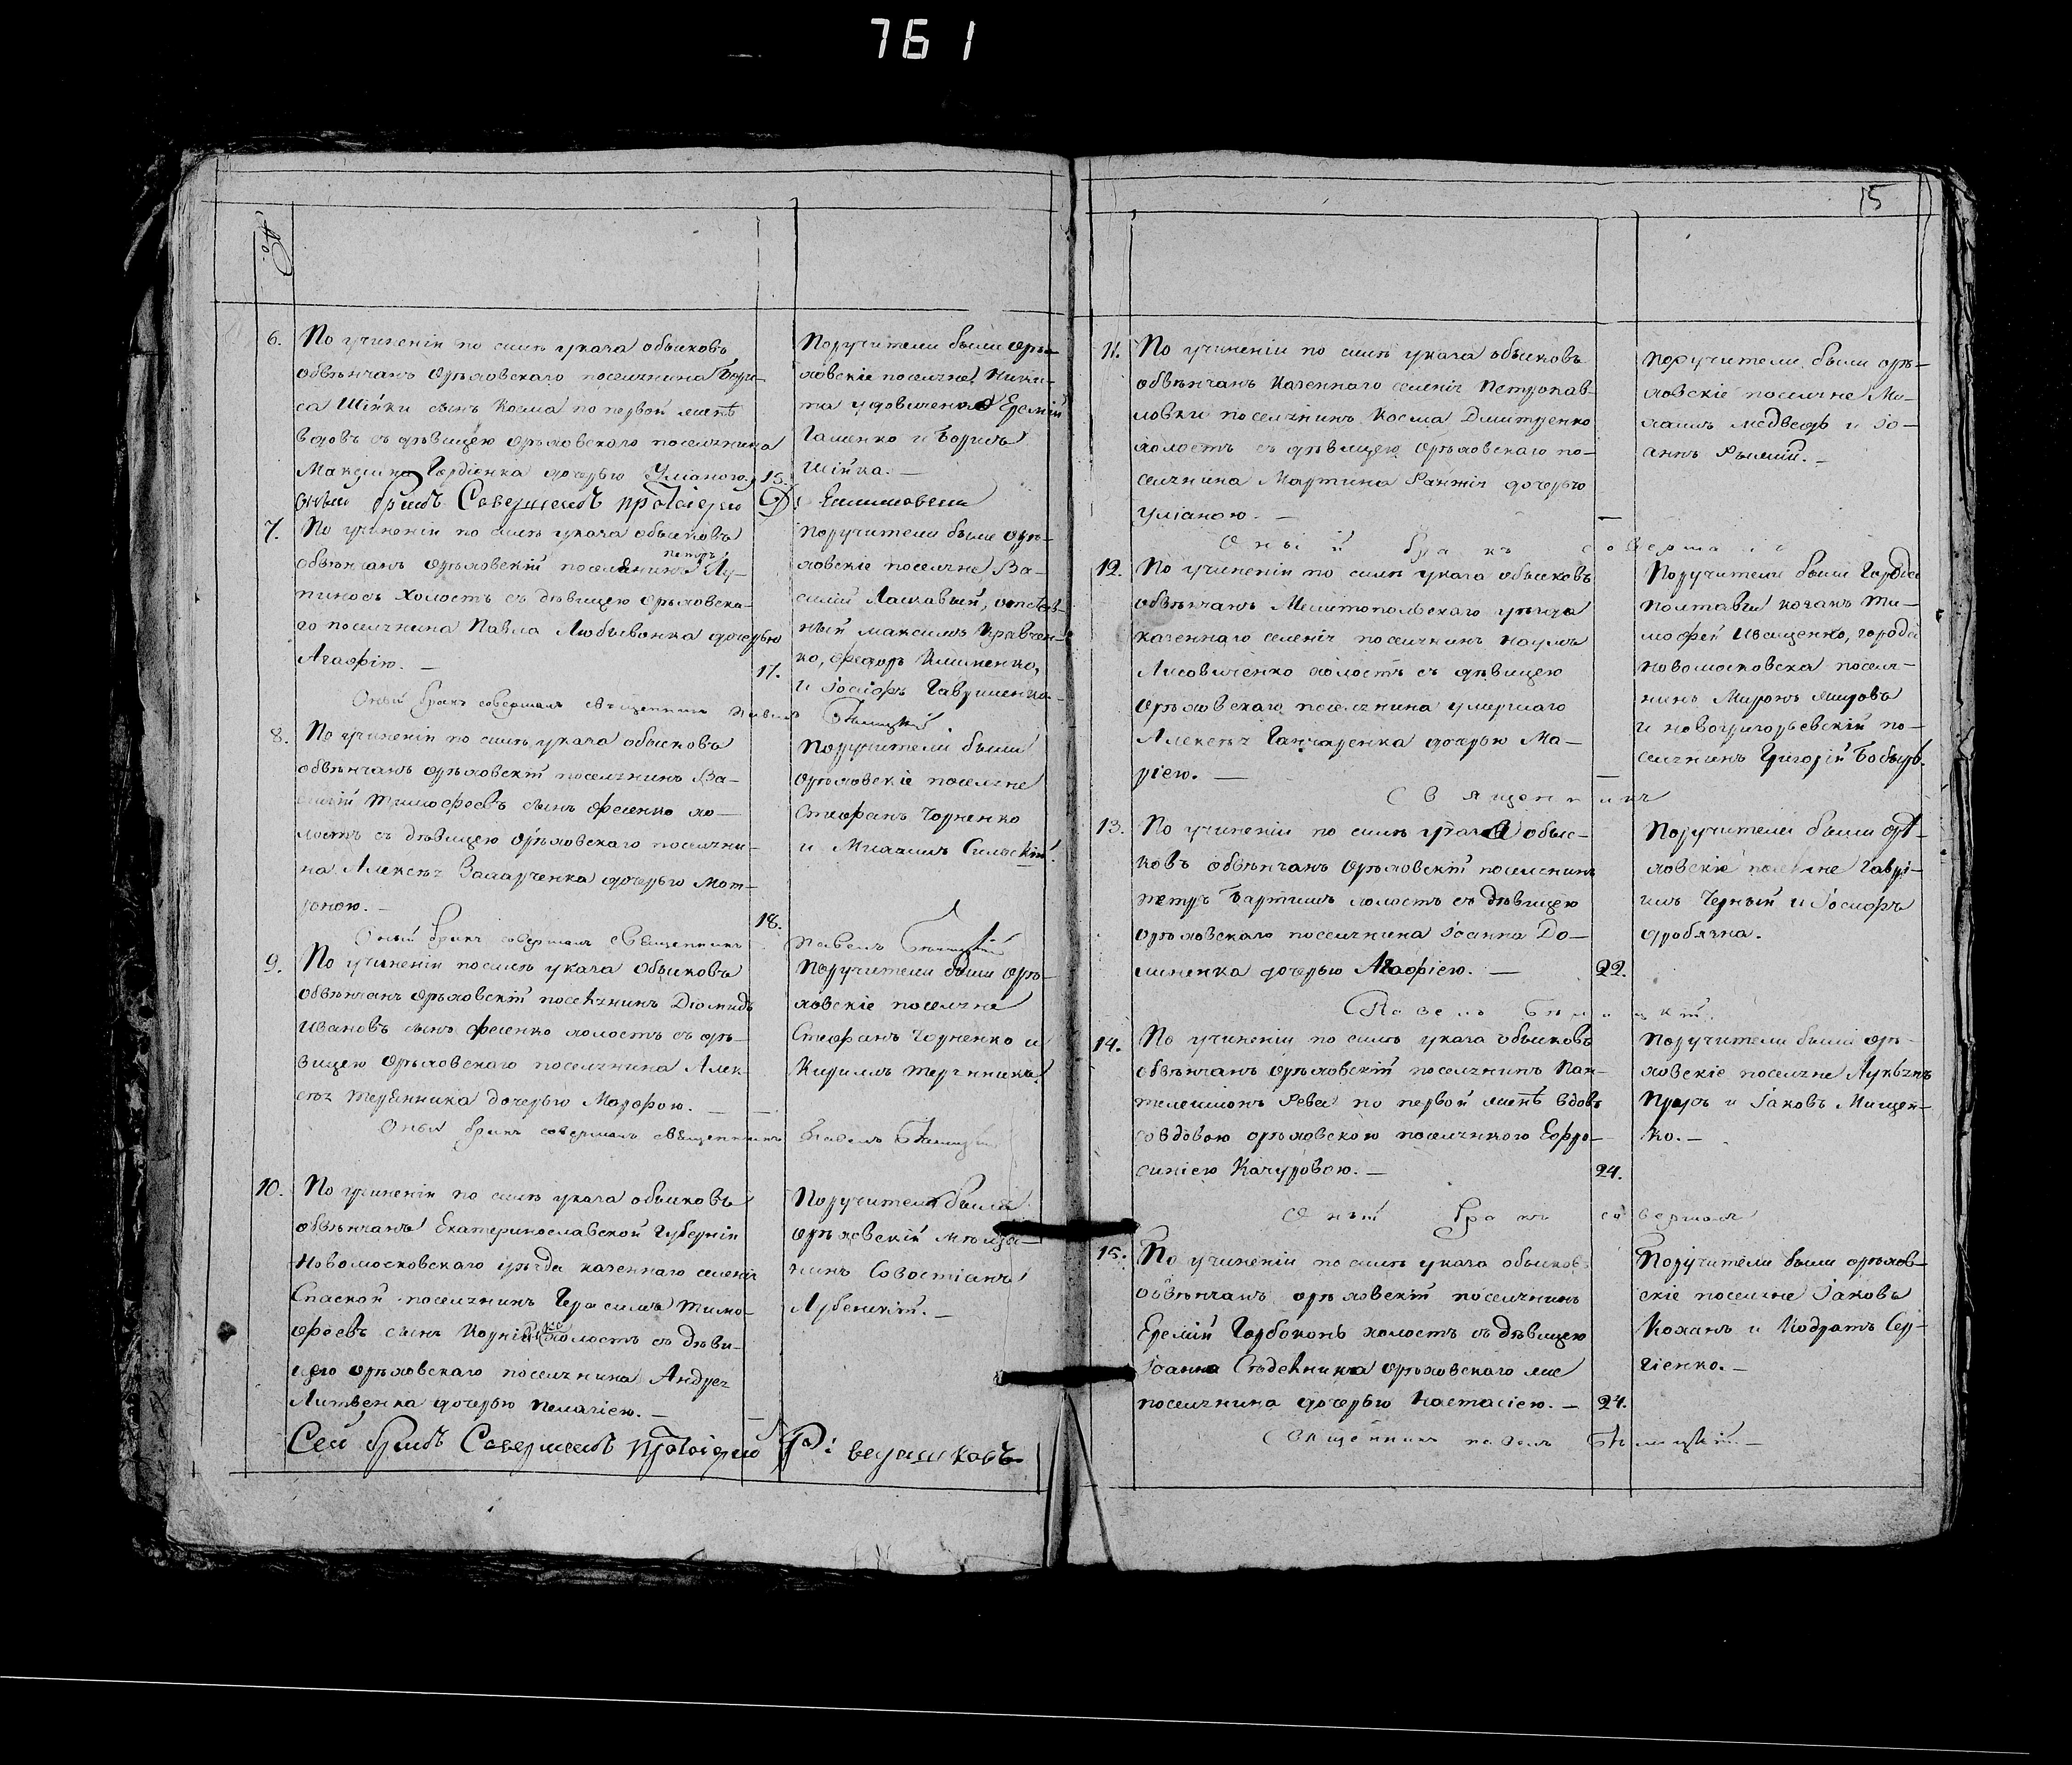 761
15
6.
По учиненіи по силѣ указа обысковъ
обвѣнчанъ орѣховскаго поселянина Бори-
са Шійки сынъ Косма по первой женѣ
вдовъ съ дѣвицею орѣховскаго поселянина
Максима Гордіенка дочерью Уліаною.
15.
оный бракъ Совершилъ протоіерей
Поручители были орѣ-
ховскіе поселяне Ники-
та удовиченко Еремій
Гаменко и Борисъ
шійка. —
7.
По учиненіи по силѣ указа обысковъ
обвѣнчанъ орѣховскій поселянинъ петръ Лу-
пиносъ холостъ съ дѣвицею орѣховска-
го поселянина Павла Любывонка дочерью
Агафію. —
17.
Оный бракъ совершилъ священникъ павелъ
Поручители были орѣ-
ховскіе поселяне Ва-
силій Ласкавый, отстав-
ный максимъ Кравчен-
ко, федоръ Клименко,
и Іосифъ Гавриленко.
8.
По учиненіи по силѣ указа обысковъ
обвѣнчанъ орѣховскій поселянинъ Ва-
силій Тимофеевъ сынъ фесенко хо-
лостъ съ дѣвицею орѣховскаго поселяни-
на Алексѣя Замарченка дочерью Мот-
роною. —
18.
Оный бракъ совершилъ священникъ павелъ
Поручители были
орѣховскіе поселяне
Стефанъ Чорненко
и Михаилъ Сильскій.
9.
По учиненіи по силѣ указа обысковъ
обвѣнчанъ орѣховскій поселянинъ Діомидъ
Ивановъ сынъ фесенко холостъ съ дѣ-
вицею орѣховскаго поселянина Алек-
сѣя Терѣнника дочерью Марфою. —
Оный бракъ совершилъ священникъ павелъ
Поручители были орѣ-
ховскіе поселяне
Стефанъ Чорненко и
Кириллъ терѣнникъ.
10.
По учиненіи по силѣ указа обысковъ
обвѣнчанъ Екатеринославской Губерніи
Новомосковскаго уѣзда казеннаго селенія
Спаской поселянинъ Герасимъ Тимо-
феевъ сынъ Корніенко холостъ съ дѣви-
цею орѣховскаго поселянина Андрея
Литвенка дочерью пелагіею. —
Сей бракъ Совершилъ протоіерей
Поручители были
орѣховскій мѣща-
нинъ Совостіанъ
Лубенскій. —
11.
По учиненіи по силѣ указа обысковъ
обвѣнчанъ казеннаго селенія петропав-
ловки поселянинъ Косма Дмитренко
холостъ съ дѣвицею орѣховскаго по-
селянина Мартина дочерью
уліаною. —
Оный бракъ совершилъ
поручители были орѣ-
ховскіе поселяне Ми-
хаилъ медведь и Іо-
аннъ Рыжий. —
12.
По учиненіи по силѣ указа обысковъ
обвѣнчанъ Мелитопольскаго уѣзда
казеннаго селенія поселянинъ наумъ
Лисовиченко холостъ съ дѣвицею
орѣховскаго поселянина умершаго
Алексѣя Ганчаренка дочерью Ма-
ріею. —
Священникъ
Поручители были города
полтавы козакъ Ти-
мофей Иващенко, города
новомосковска поселя-
нинъ Миронъ
и новогригорьевскій по-
селянинъ Григорій Бобырь.
13.
По учиненіи по силѣ указа обыс-
ковъ обвѣнчанъ орѣховскій поселянинъ
петръ Бартишъ холостъ съ дѣвицею
орѣховскаго поселянина Іоанна До-
линенка дочерью Агафіею. —
22.
Павелъ
Поручители были орѣ-
ховскіе поселяне Гаврі-
илъ Черный и Іосифъ
дробязка.
14.
По учиненіи по силѣ указа обысковъ
обвѣнчанъ орѣховскій поселянинъ Пан-
телеимонъ Рева по первой женѣ вдовъ
со вдовою орѣховскою поселянкою Ефро-
синіею Качуровою. —
24.
Оный бракъ совершилъ
Поручители были орѣ-
ховскіе поселяне Лукьянъ
и Іаковъ Мищен-
ко. —
15.
По учиненіи по силѣ указа обысковъ
обвѣнчанъ орѣховскій поселянинъ
Еремій Горбоконь холостъ съ дѣвицею
Іоанна Сѣделника орѣховскаго же
поселянина дочерью настасіею. —
24.
Священникъ павелъ
Поручители были орѣхов-
скіе поселяне Іаковъ
Коханъ и Кодратъ Сер-
гіенко. —